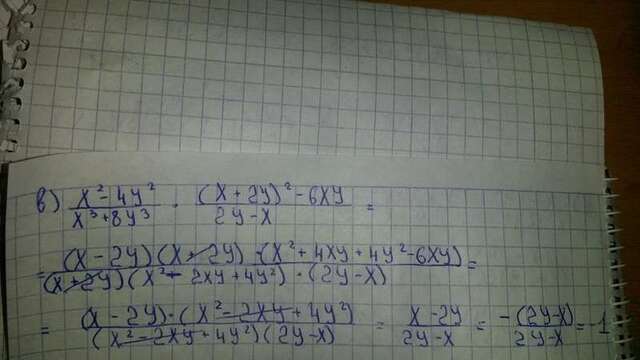 в) (x² - 4y²)/(x³ + 8y³) · ((x + 2y)² - 6xy)/(2y - x) =
= ((x - 2y)(x + 2y) · (x² + 4xy + 4y² - 6xy))/((x + 2y)(x² - 2xy + 4y²) · (2y - x)) =
= ((x - 2y) · (x² - 2xy + 4y²))/((x² - 2xy + 4y²)(2y - x)) = (x - 2y)/(2y - x) = (-(2y - x))/(2y - x) = -1